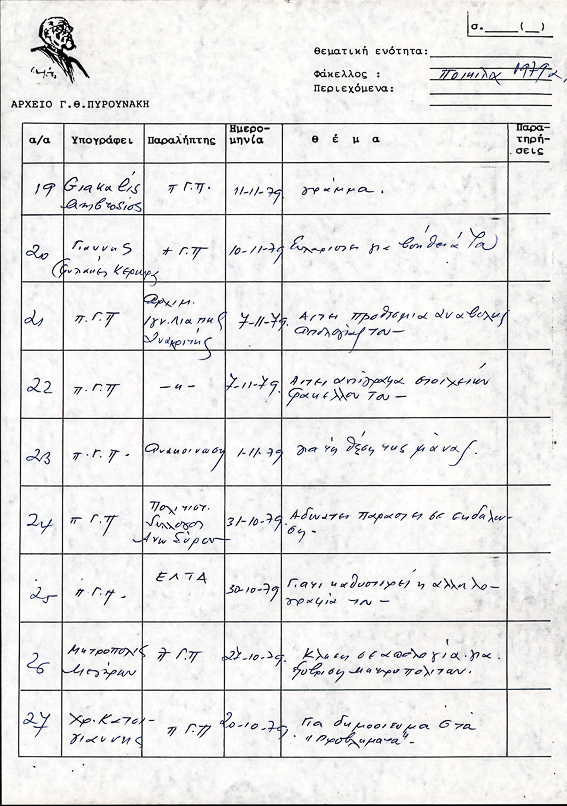 σ.____(__)
Θεματική ενότητα:
Φάκελλος : Ποικίλα 1979
Περιεχόμενα:
ΑΡΧΕΙΟ Γ.Θ.ΠΥΡΟΥΝΑΚΗ
α/α Υπογράφει Παραλήπτης Ημερομηνία θ έ μ α Παρατηρήσεις
19 Giakalis Ambrosios π Γ.Π. 11-11-79 γράμμα.
20 Γιαννης (φυλακές Κερκυρας π Γ.Π 10-11-79 Ευχαριστει για βοήθειά
21 π.Γ.Π Αρχιμ. Ανακριτής 7-11-79 Αιτει προθεσμια αναβολης απολογίας του –
22 π.Γ.Π –"– 7-11-79. Αιτει αντίγραφα στοιχείων φακέλλου του –
23 π.Γ.Π. Ανακοινωση 1-11-79 για τη θέση της μάνας.
24 π Γ.Π Πολιτιστ. Συλλογο Ανω Σύρου 31-10-79. Αδυνατει παραστει σε εκδηλωση –
25 π Γ.Π. ΕΛΤΑ 30-10-79 Γιατι καθυστερεί η αλληλογραφία του –
26 Μητροπολις Μεγάρων π Γ.Π 27-10-79. Κλήση σε απολογία για εξύβριση Μητροπολιτων.
27 Χρ. Κατσιγιαννης π Γ.Π 20-10-79. Για δημοσιευμα στα "Προβλήματα" –